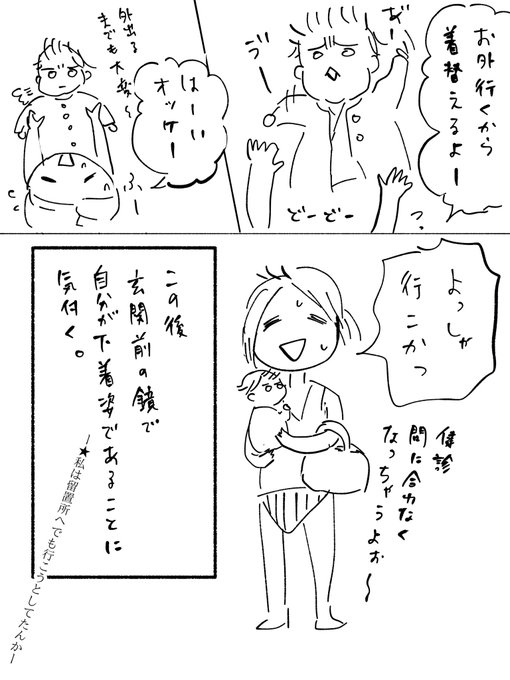 お外行くから
着替えるよー
っ
あ゛ー
う゛ー
どーどー
はーい
オッケー
外出る
までも大変〜
ふぅー
よっしゃ
行こかっ
健診
間に合わなく
なっちゃうよぉ〜
この後
玄関前の鏡で
自分が下着姿であることに
気付く。
ー★私は留置所へでも行こうとしてたんかー